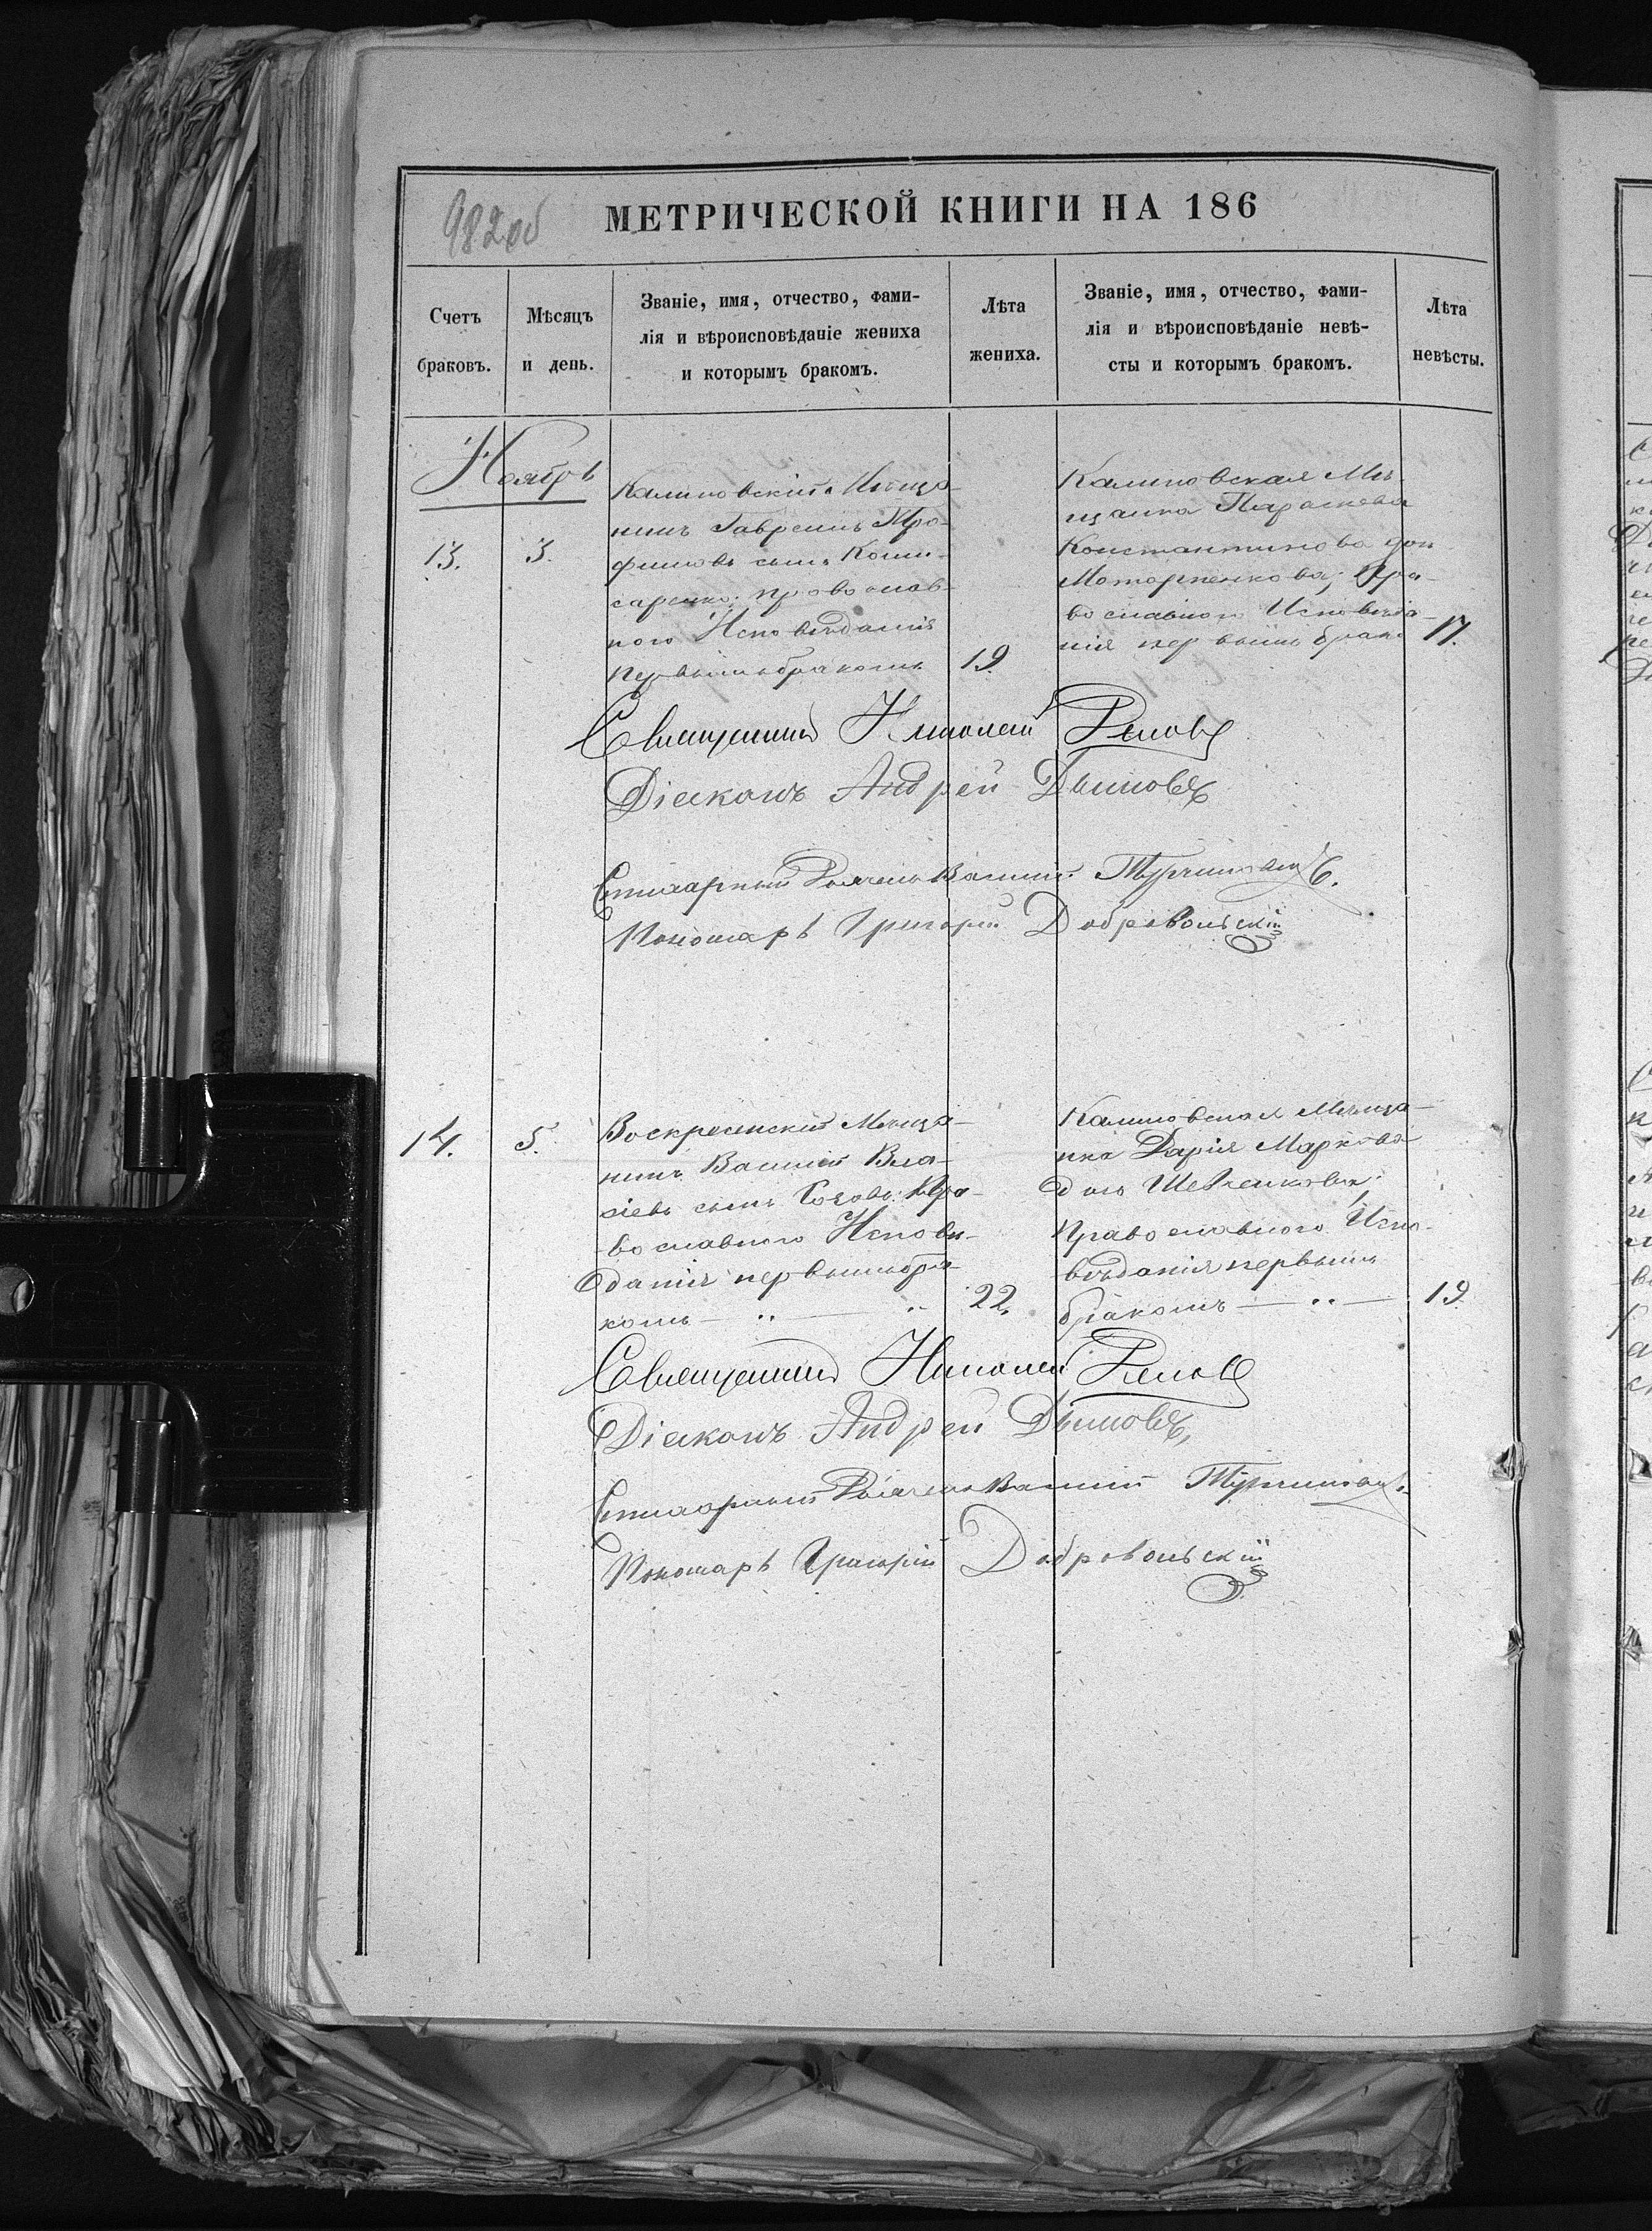 982об
МЕТРИЧЕСКОЙ КНИГИ НА 186
Счетъ
браковъ.
Мѣсяцъ
и день.
Званіе, имя, отчество, фами-
лія и вѣроисповѣданіе жениха
и которымъ бракомъ.
Лѣта
жениха.
Званіе, имя, отчество, фами-
лія и вѣроисповѣданіе невѣ-
сты и которымъ бракомъ.
Лѣта
невѣсты.
Ноябрь
13.
3.
Калиновскій Мѣща-
нинъ Гавріилъ Тро-
фимовъ сынъ Коми-
саренко; православ-
ного Исповѣданія
первымъ бракомъ
19.
Калиновская Мѣ-
щанка Параскева
Константинова доч
Моторненкова; Пра-
вославного Исповѣда-
нія первымъ брако
17.
Священникъ Николай
Діаконъ Андрей Дымовъ
Стихарный Дьячекъ Василій
Пономарь Григорій Добровольскій
14.
5.
Воскресенскій Мѣща-
нинъ Василій Вла-
сіевъ сынъ Пра-
вославного Исповѣ-
данія первымъ бра-
комъ
22.
Калиновская Мѣща-
нка Дарія Маркова
дочь Шевченкова;
Православного Испо-
вѣданія первымъ
бракомъ
19.
Священникъ Николай
Діаконъ Андрей Дымовъ,
Стихарный Дьячекъ Василій
Пономарь Григорій Добровольскій